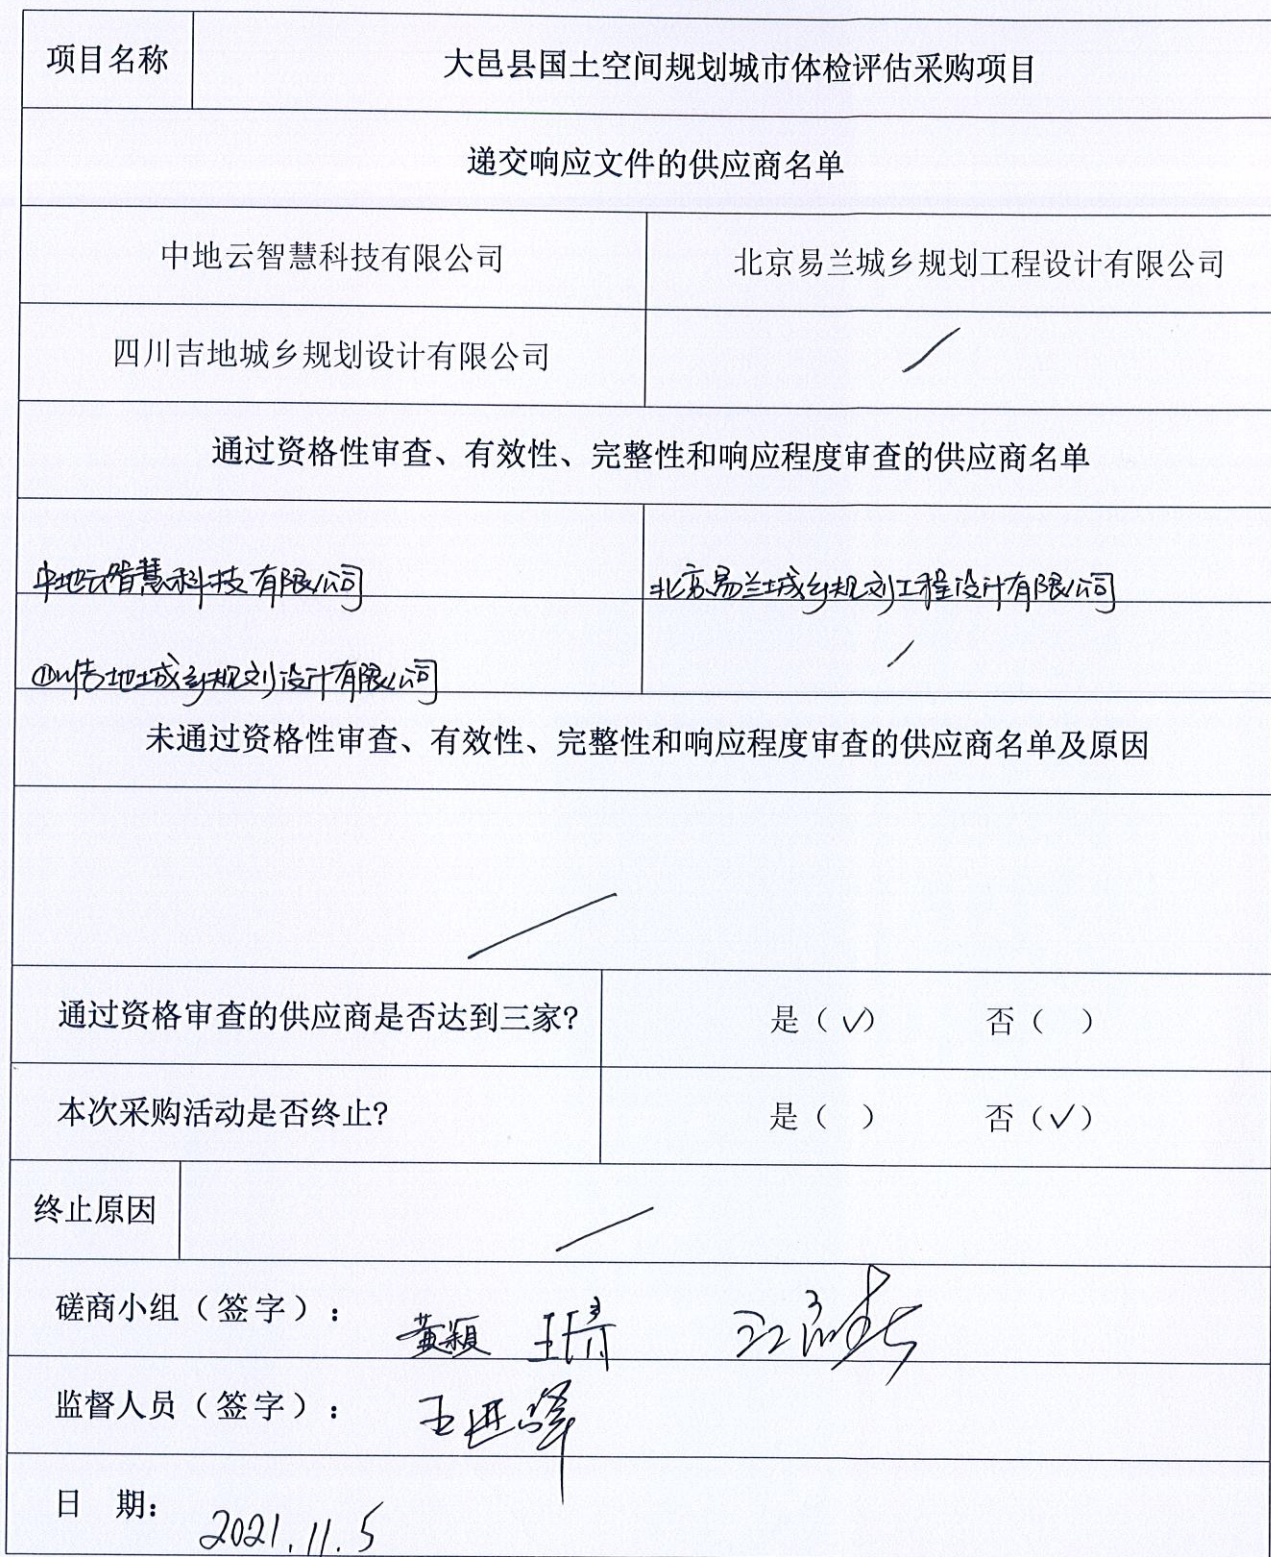 项目名称 大邑县国土空间规划城市体检评估采购项目
递交响应文件的供应商名单
中地云智慧科技有限公司 北京易兰城乡规划工程设计有限公司
四川吉地城乡规划设计有限公司 /
通过资格性审查、有效性、完整性和响应程度审查的供应商名单
中地云智慧科技有限公司 北京易兰城乡规划工程设计有限公司
四川吉地城乡规划设计有限公司 /
未通过资格性审查、有效性、完整性和响应程度审查的供应商名单及原因
/
通过资格审查的供应商是否达到三家? 是（√） 否（ ）
本次采购活动是否终止? 是（ ） 否（√）
终止原因 /
磋商小组（签字）： 黄颖
监督人员（签字）： 王进
日 期: 2021.11.5